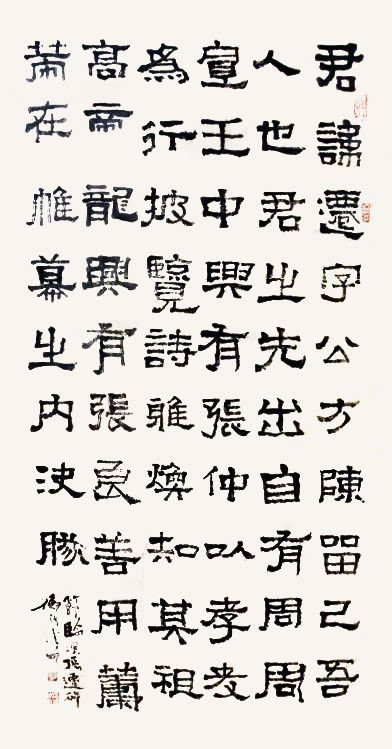 君諱遷字公方陳留己吾
人也君之先出自有周周
宣王中興有張仲以孝友
為行披覽詩雅煥知其祖
高帝龍興有張良善用籌
策在帷幕之內決勝
節臨漢張遷碑